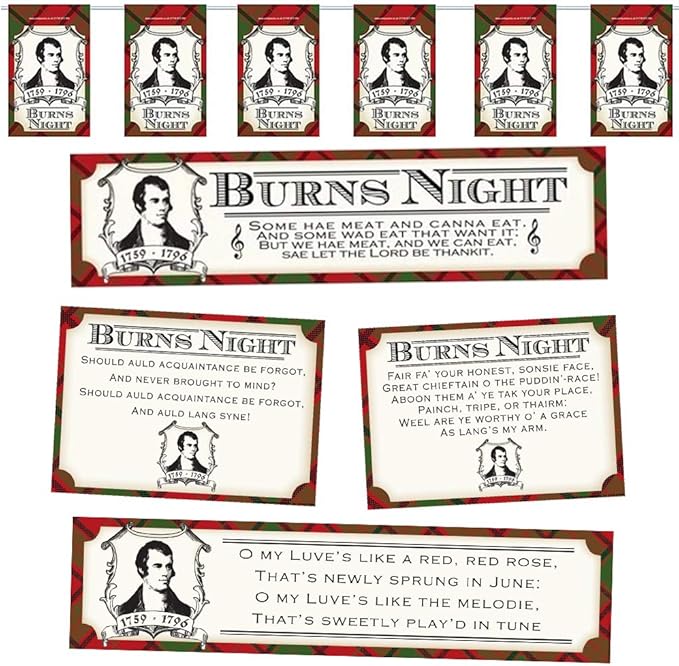 1759 - 1796
BURNS
NIGHT
1759 - 1796
BURNS
NIGHT
1759 - 1796
BURNS
NIGHT
1759 - 1796
BURNS
NIGHT
1759 - 1796
BURNS
NIGHT
1759 - 1796
BURNS
NIGHT
BURNS NIGHT
SOME HAE MEAT AND CANNA EAT,
AND SOME WAD EAT THAT WANT IT;
BUT WE HAE MEAT, AND WE CAN EAT,
SAE LET THE LORD BE THANKIT.
1759 - 1796
BURNS NIGHT
SHOULD AULD ACQUAINTANCE BE FORGOT,
AND NEVER BROUGHT TO MIND?
SHOULD AULD ACQUAINTANCE BE FORGOT,
AND AULD LANG SYNE!
1759 - 1796
BURNS NIGHT
FAIR FA' YOUR HONEST, SONSIE FACE,
GREAT CHIEFTAIN O THE PUDDIN'-RACE!
ABOON THEM A' YE TAK YOUR PLACE,
PAINCH, TRIPE, OR THAIRM:
WEEL ARE YE WORTHY O' A GRACE
AS LANG'S MY ARM.
1759 - 1796
O MY LUVE'S LIKE A RED, RED ROSE,
THAT'S NEWLY SPRUNG IN JUNE:
O MY LUVE'S LIKE THE MELODIE,
THAT'S SWEETLY PLAY'D IN TUNE
1759 - 1796